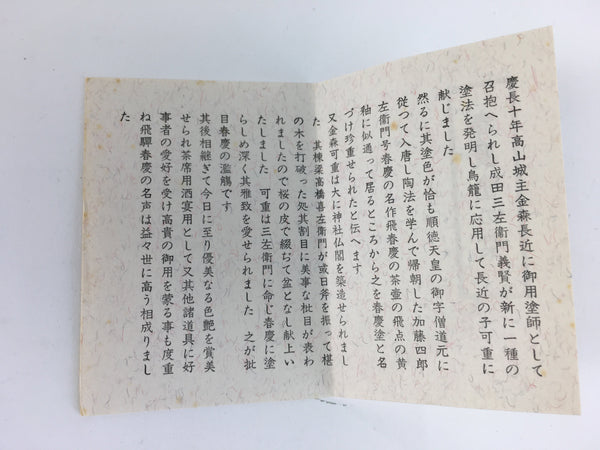 慶長十年高山城主金森長近に御用塗師として
召抱へられし成田三左衛門義賢が新に一種の
塗法を発明し鳥籠に応用して長近の子可重に
献じました
然るに其塗色が恰も順徳天皇の御宇僧道元に
従つて入唐し陶法を学んで帰朝した加藤四郎
左衛門号春慶の名作飛春慶の茶壷の飛点の黄
釉に似通って居るところから之を春慶塗と名
づけ珍重せられたと伝へます
又金森可重は大に神社仏閣を築造せられまし
た 其棟梁高橋喜左衛門が或日斧を振って椹
の木を打破った処其割目に美事な柾目が表わ
れましたので桜の皮で綴ぢて盆となし献上い
たしました 可重は三左衛門に命じ春慶に塗
らしめ深く其雅致を愛せられました 之が批
目春慶の濫觴です
其後相継ぎて今日に至り優美なる色艶を賞美
せられ茶席用酒宴用として又其他諸道具に好
事者の愛好を受け高貴の御用を蒙る事も度重
ね飛騨春慶の名声は益々世に高う相成りまし
た